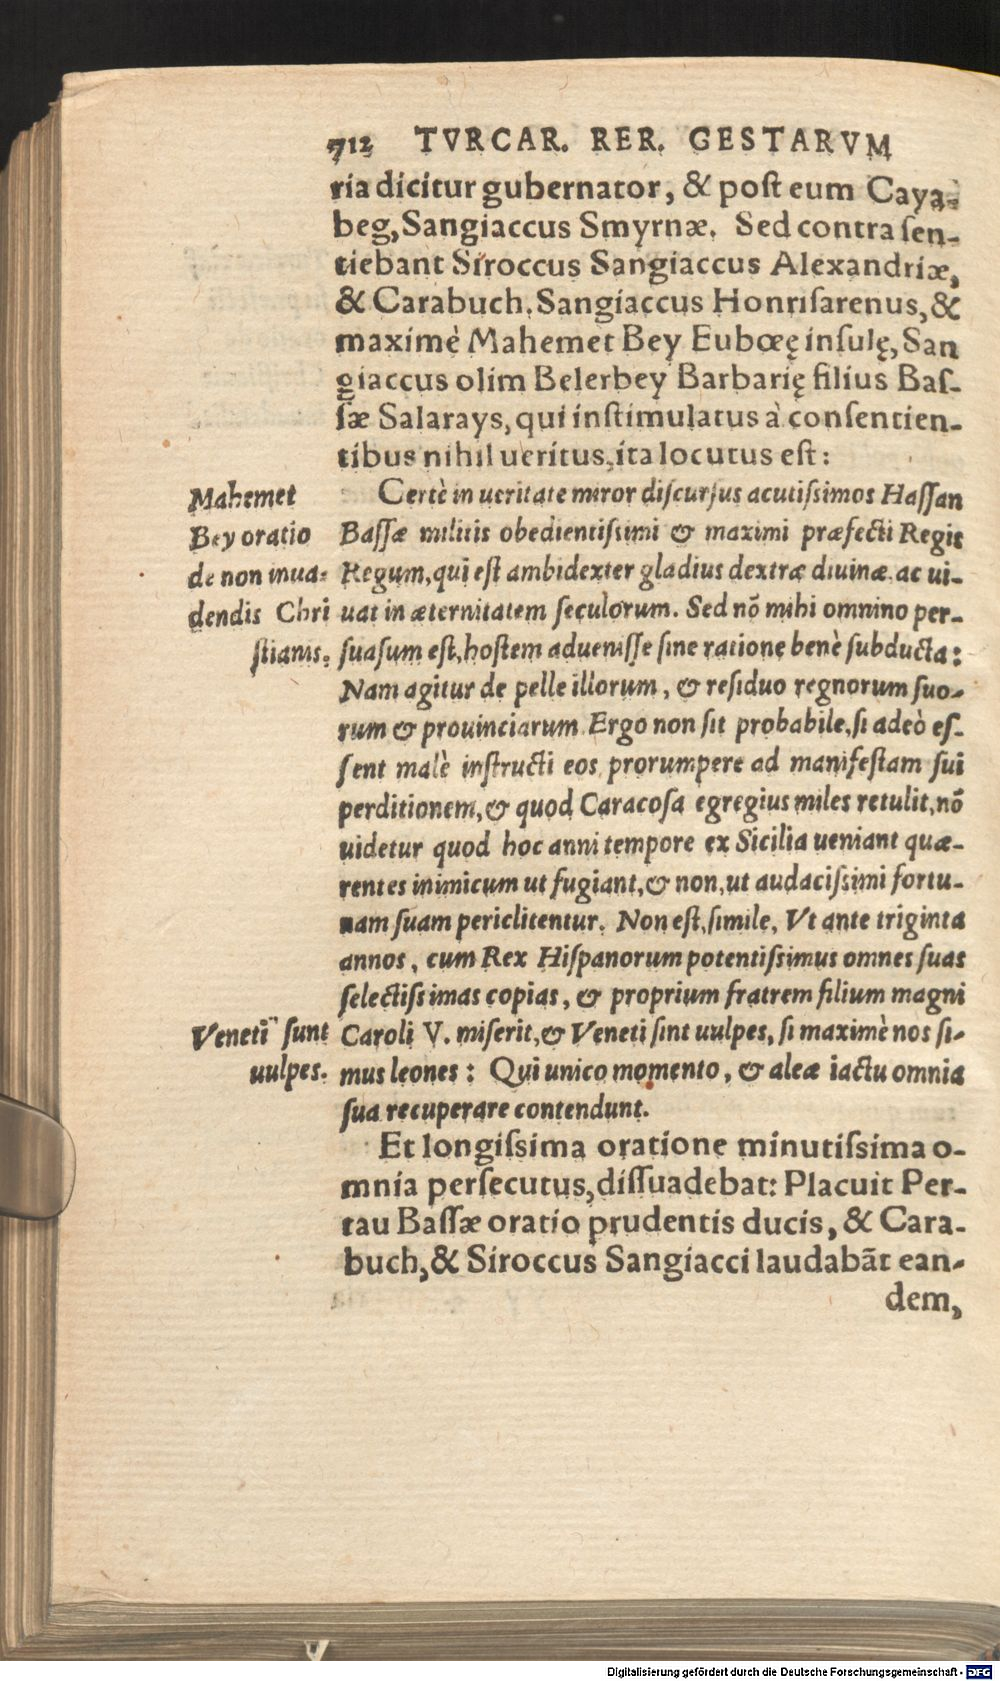 712 TVRCAR. RER. GESTARVM
ria dicitur gubernator, & poſt eum Caya-
beg, Sangiaccus Smyrnæ. Sed contra ſen-
tiebant Siroccus Sangiaccus Alexandriæ,
& Carabuch, Sangiaccus Honriſarenus, &
maximè Mahemet Bey Eubœę inſulę, San
giaccus olim Belerbey Barbarię filius Baſ-
ſæ Salarays, qui inſtimulatus à conſentien-
tibus nihil ueritus, ita locutus eſt:
Mahemet
Bey oratio
de non inua-
dendis Chri
ſtianis.
Certè in ueritate miror diſcurſus acutiſsimos Haſſan
Baſſæ militis obedientiſsimi & maximi præfecti Regis
Regum, qui eſt ambidexter gladius dextræ diuinæ ac ui-
uat in æternitatem ſeculorum. Sed nõ mihi omnino per-
ſuaſum eſt, hoſtem adueniſſe ſine ratione benè ſubducta:
Nam agitur de pelle illorum, & reſiduo regnorum ſuo-
rum & prouinciarum. Ergo non ſit probabile, ſi adeò eſ-
ſent malè inſtructi eos prorumpere ad manifeſtam ſui
perditionem, & quod Caracoſa egregius miles retulit, nõ
uidetur quod hoc anni tempore ex Sicilia ueniant quæ-
rentes inimicum ut fugiant, & non, ut audaciſsimi fortu-
nam ſuam periclitentur. Non eſt, ſimile, Vt ante triginta
annos, cum Rex Hiſpanorum potentiſsimus omnes ſuas
ſelectiſsimas copias, & proprium fratrem filium magni
Veneti ſunt
uulpes.
Caroli V. miſerit, & Veneti ſint uulpes, ſi maximè nos ſi-
mus leones: Qui unico momento, & aleæ iactu omnia
ſua recuperare contendunt.
Et longiſsima oratione minutiſsima o-
mnia perſecutus, diſſuadebat: Placuit Per-
tau Baſſæ oratio prudentis ducis, & Cara-
buch, & Siroccus Sangiacci laudabãt ean-
dem,
Digitalisierung gefördert durch die Deutsche Forschungsgemeinschaft - DFG